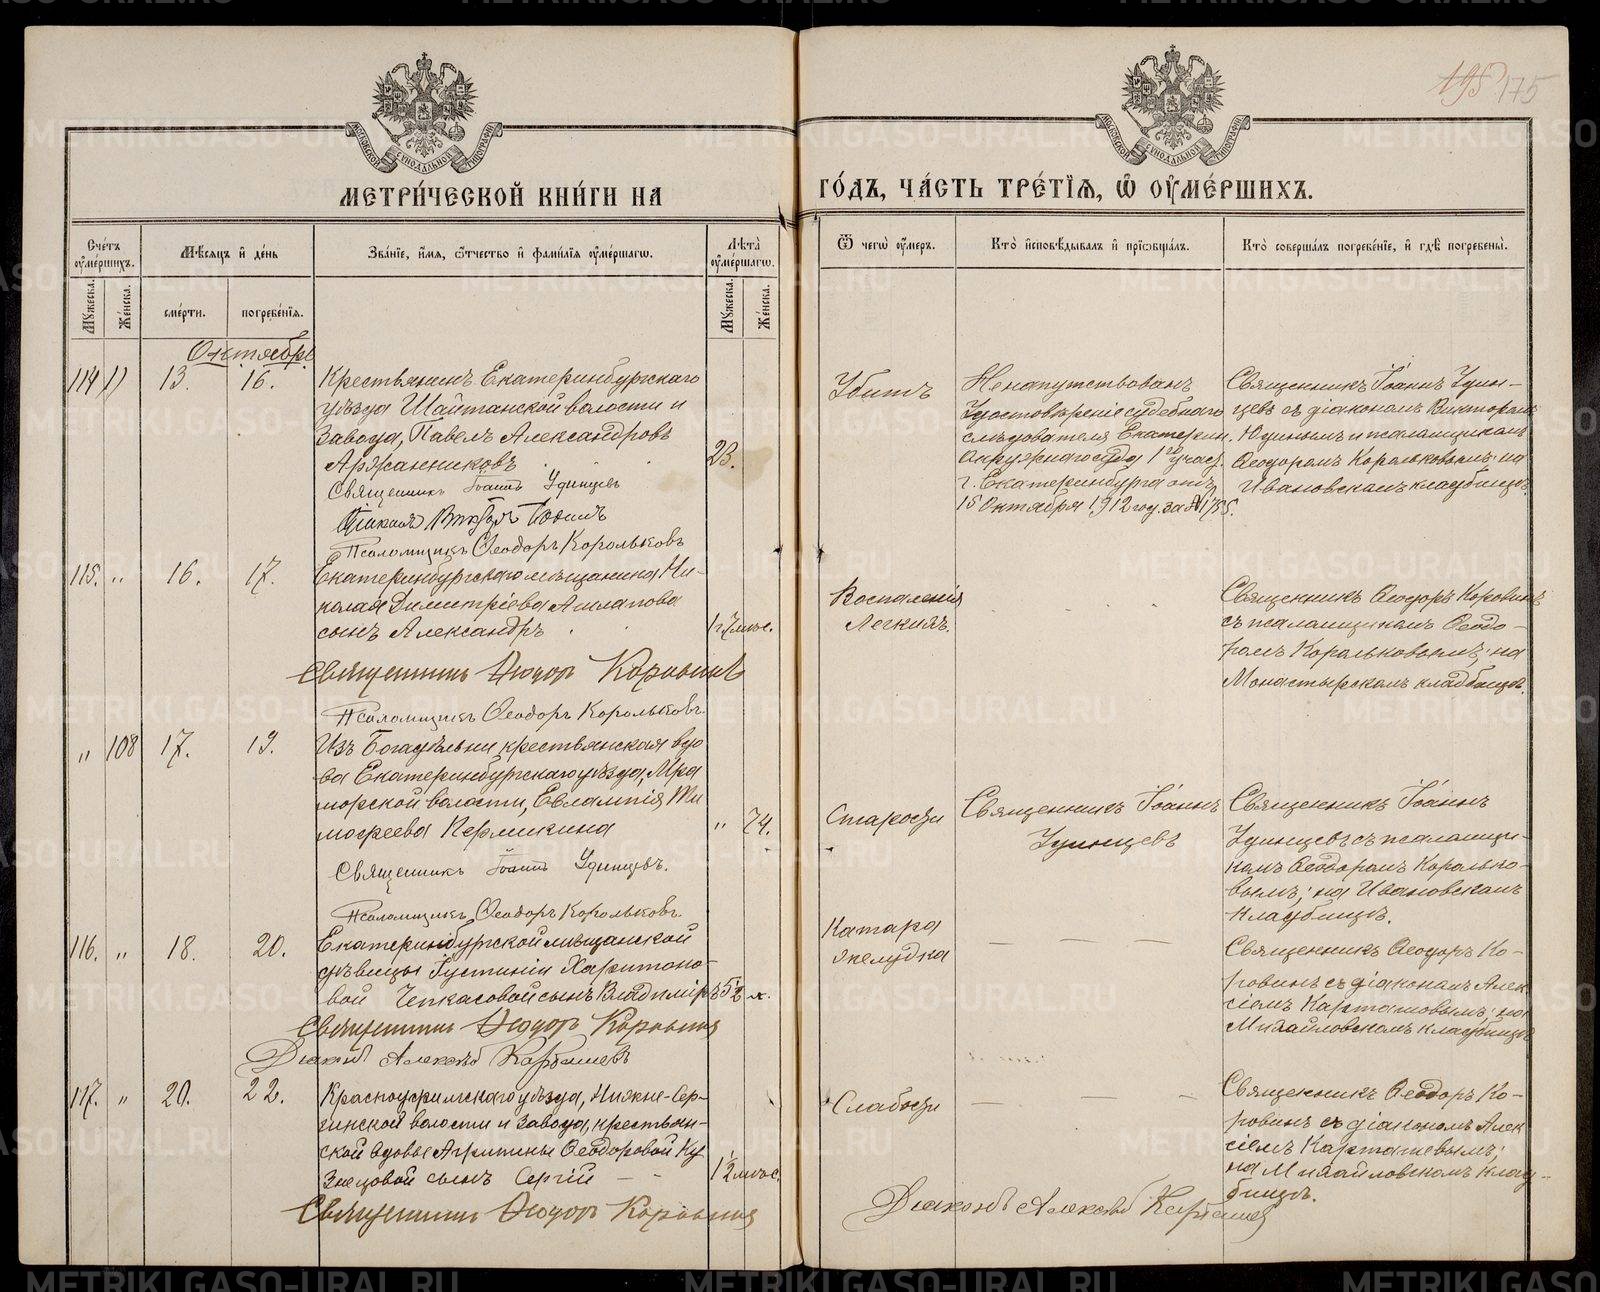 195 175
МЕТРИ́ЧЕСКОЙ КНИ́ГИ НА
ГО́ДЪ, ЧА́СТЬ ТРЕ́ТІѦ, Ѿ ОУ҆МЕ́РШИХЪ.
Сче́тъ оу҆ме́ршихъ.
Мѣ́сяцъ и҆ де́нь
Зва́нїе, и҆́мя, ѻ҆́тчество и҆ фами́лїя оу҆ме́ршагѡ.
Лѣ́та оу҆ме́ршагѡ.
Ѿ чегѡ̀ оу҆́меръ.
Кто̀ и҆сповѣ́дывалъ и҆ прїѡбща́лъ.
Кто̀ соверша́лъ погребе́нїе, и҆ гдѣ̀ погребены̀.
Мꙋ́жеска.
Же́нска.
сме́рти.
погребе́нїя.
Мꙋ́жеска.
Же́нска.
Октябрь
114 " 13. 16.
Крестьянинъ Екатеринбургскаго
уѣзда Шайтанской волости и
завода, Павелъ Александровъ
Аржанниковъ
23.
Священникъ Іоаннъ Удинцевъ
Діаконъ Викторъ Юдинъ
Псаломщикъ Ѳеодоръ Корольковъ
Убитъ
Ненапутствованъ
Удостовѣреніе судебнаго
слѣдователя Екатерин.
Окружнаго суда 1го участ.
г. Екатеринбурга отъ
15 Октября 1912 год. за № 1755.
Священникъ Іоаннъ Удин-
цевъ съ діакономъ Викторомъ
Юдинымъ и псаломщикомъ
Ѳеодоромъ Корольковымъ; на
Ивановскомъ кладбищѣ.
115. " 16. 17.
Екатеринбургскаго мѣщанина Ни-
колая Димитріева Ашлапова
сынъ Александръ
1г. 7 мѣс.
Священникъ Ѳеодоръ Коровинъ
Псаломщикъ Ѳеодоръ Корольковъ.
Воспаленія
Легкихъ.
Священникъ Ѳеодоръ Коровинъ
съ псаломщикомъ Ѳеодо-
ромъ Корольковымъ; на
Монастырскомъ кладбищѣ.
" 108 17. 19.
Изъ Богадѣльни крестьянская вдо
ва Екатеринбургскаго уѣзда, Мра
морской волости, Евлампія Ти
моѳеева Пермикина
" 74.
Священникъ Іоаннъ Удинцевъ.
Псаломщикъ Ѳеодоръ Корольковъ.
Старости
Священникъ Іоаннъ
Удинцевъ
Священникъ Іоаннъ
Удинцевъ съ псаломщи-
комъ Ѳеодоромъ Королько-
вымъ; на Ивановскомъ
кладбищѣ.
116. " 18. 20.
Екатеринбургской мѣщанской
дѣвицы Іустиніи Харитоно-
вой Чепкасовой сынъ Владиміръ
5½ м.
Священникъ Ѳеодоръ Коровинъ
Діаконъ Алексѣй Карташевъ
Катара
желудка
Священникъ Ѳеодоръ Ко-
ровинъ съ діакономъ Алек
сіемъ Карташовымъ; на
Михайловскомъ кладбищѣ
117. " 20. 22.
Красноуфимскаго уѣзда, Нижне-Сер-
гинской волости и завода, крестьян-
ской вдовы Агрипины Ѳеодоровой Ку
знецовой сынъ Сергій
1½ мѣс.
Священникъ Ѳеодоръ Коровинъ
Слабости
Священникъ Ѳеодоръ Ко-
ровинъ съ діакономъ Алек
сіемъ Карташевымъ;
на Михайловскомъ клад-
бищѣ.
Діаконъ Алексѣй Карташевъ
METRIKI.GASO-URAL.RU